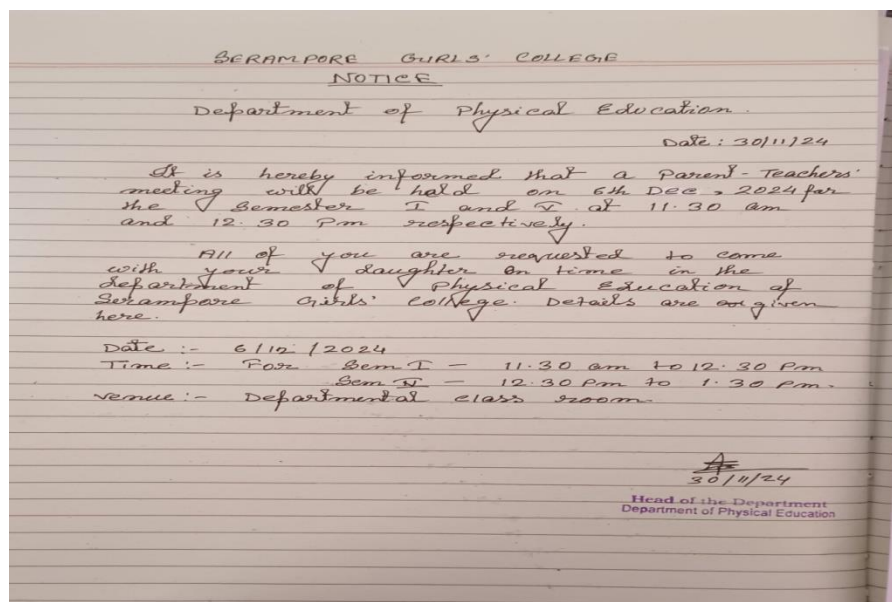 SERAMPORE GIRLS' COLLEGE
NOTICE
Department of Physical Education.
Date : 30/11/24
It is hereby informed that a Parent-Teachers'
meeting will be held on 6th Dec, 2024 for
the Semester I and V at 11.30 am
and 12.30 Pm respectively.
All of you are requested to come
with your daughter on time in the
department of Physical Education of
Serampore Girls' College. Details are given
here.
Date :- 6/12/2024
Time :- For Sem I - 11.30 am to 12.30 Pm
Sem - 12.30 Pm to 1.30 Pm.
Venue :- Departmental class room
30/11/24
Head of the Department
Department of Physical Education